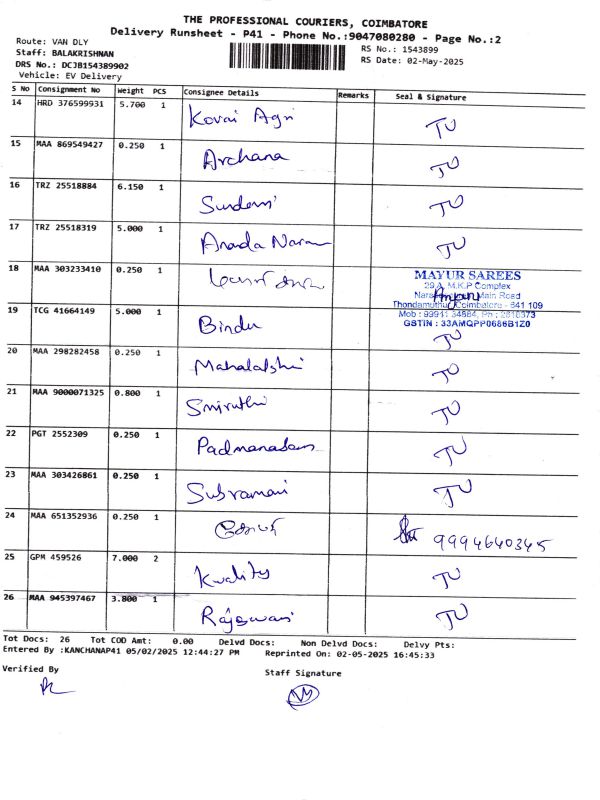 THE PROFESSIONAL COURIERS, COIMBATORE
Delivery Runsheet - P41 - Phone No.:9047080280 - Page No.:2
Route: VAN DLY
RS No.: 1543899
Staff: BALAKRISHNAN
RS Date: 02-May-2025
DRS No.: DCJB154389902
Vehicle: EV Delivery
S No Consignment No Weight PCS Consignee Details Remarks Seal & Signature
14 HRD 376599931 5.700 1 Kovai Agri TU
15 MAA 869549427 0.250 1 Archana TU
16 TRZ 25518884 6.150 1 TU
17 TRZ 25518319 5.000 1 TU
18 MAA 303233410 0.250 1
MAYUR SAREES
29 A, M.K.P Complex
Main Road
Coimbatore - 641 109
GSTIN : 33AMQPP0686B1Z0
19 TCG 41664149 5.000 1 Bindu TU
20 MAA 298282458 0.250 1 TU
21 MAA 9000071325 0.800 1 Smiruthi TU
22 PGT 2552309 0.250 1 TU
23 MAA 303426861 0.250 1 Subramani TU
24 MAA 651352936 0.250 1 9994640345
25 GPM 459526 7.000 2 Kuality TU
26 MAA 945397467 3.800 1 TU
Tot Docs: 26 Tot COD Amt: 0.00 Delvd Docs: Non Delvd Docs: Delvy Pts:
Entered By :KANCHANAP41 05/02/2025 12:44:27 PM Reprinted On: 02-05-2025 16:45:33
Verified By
Staff Signature